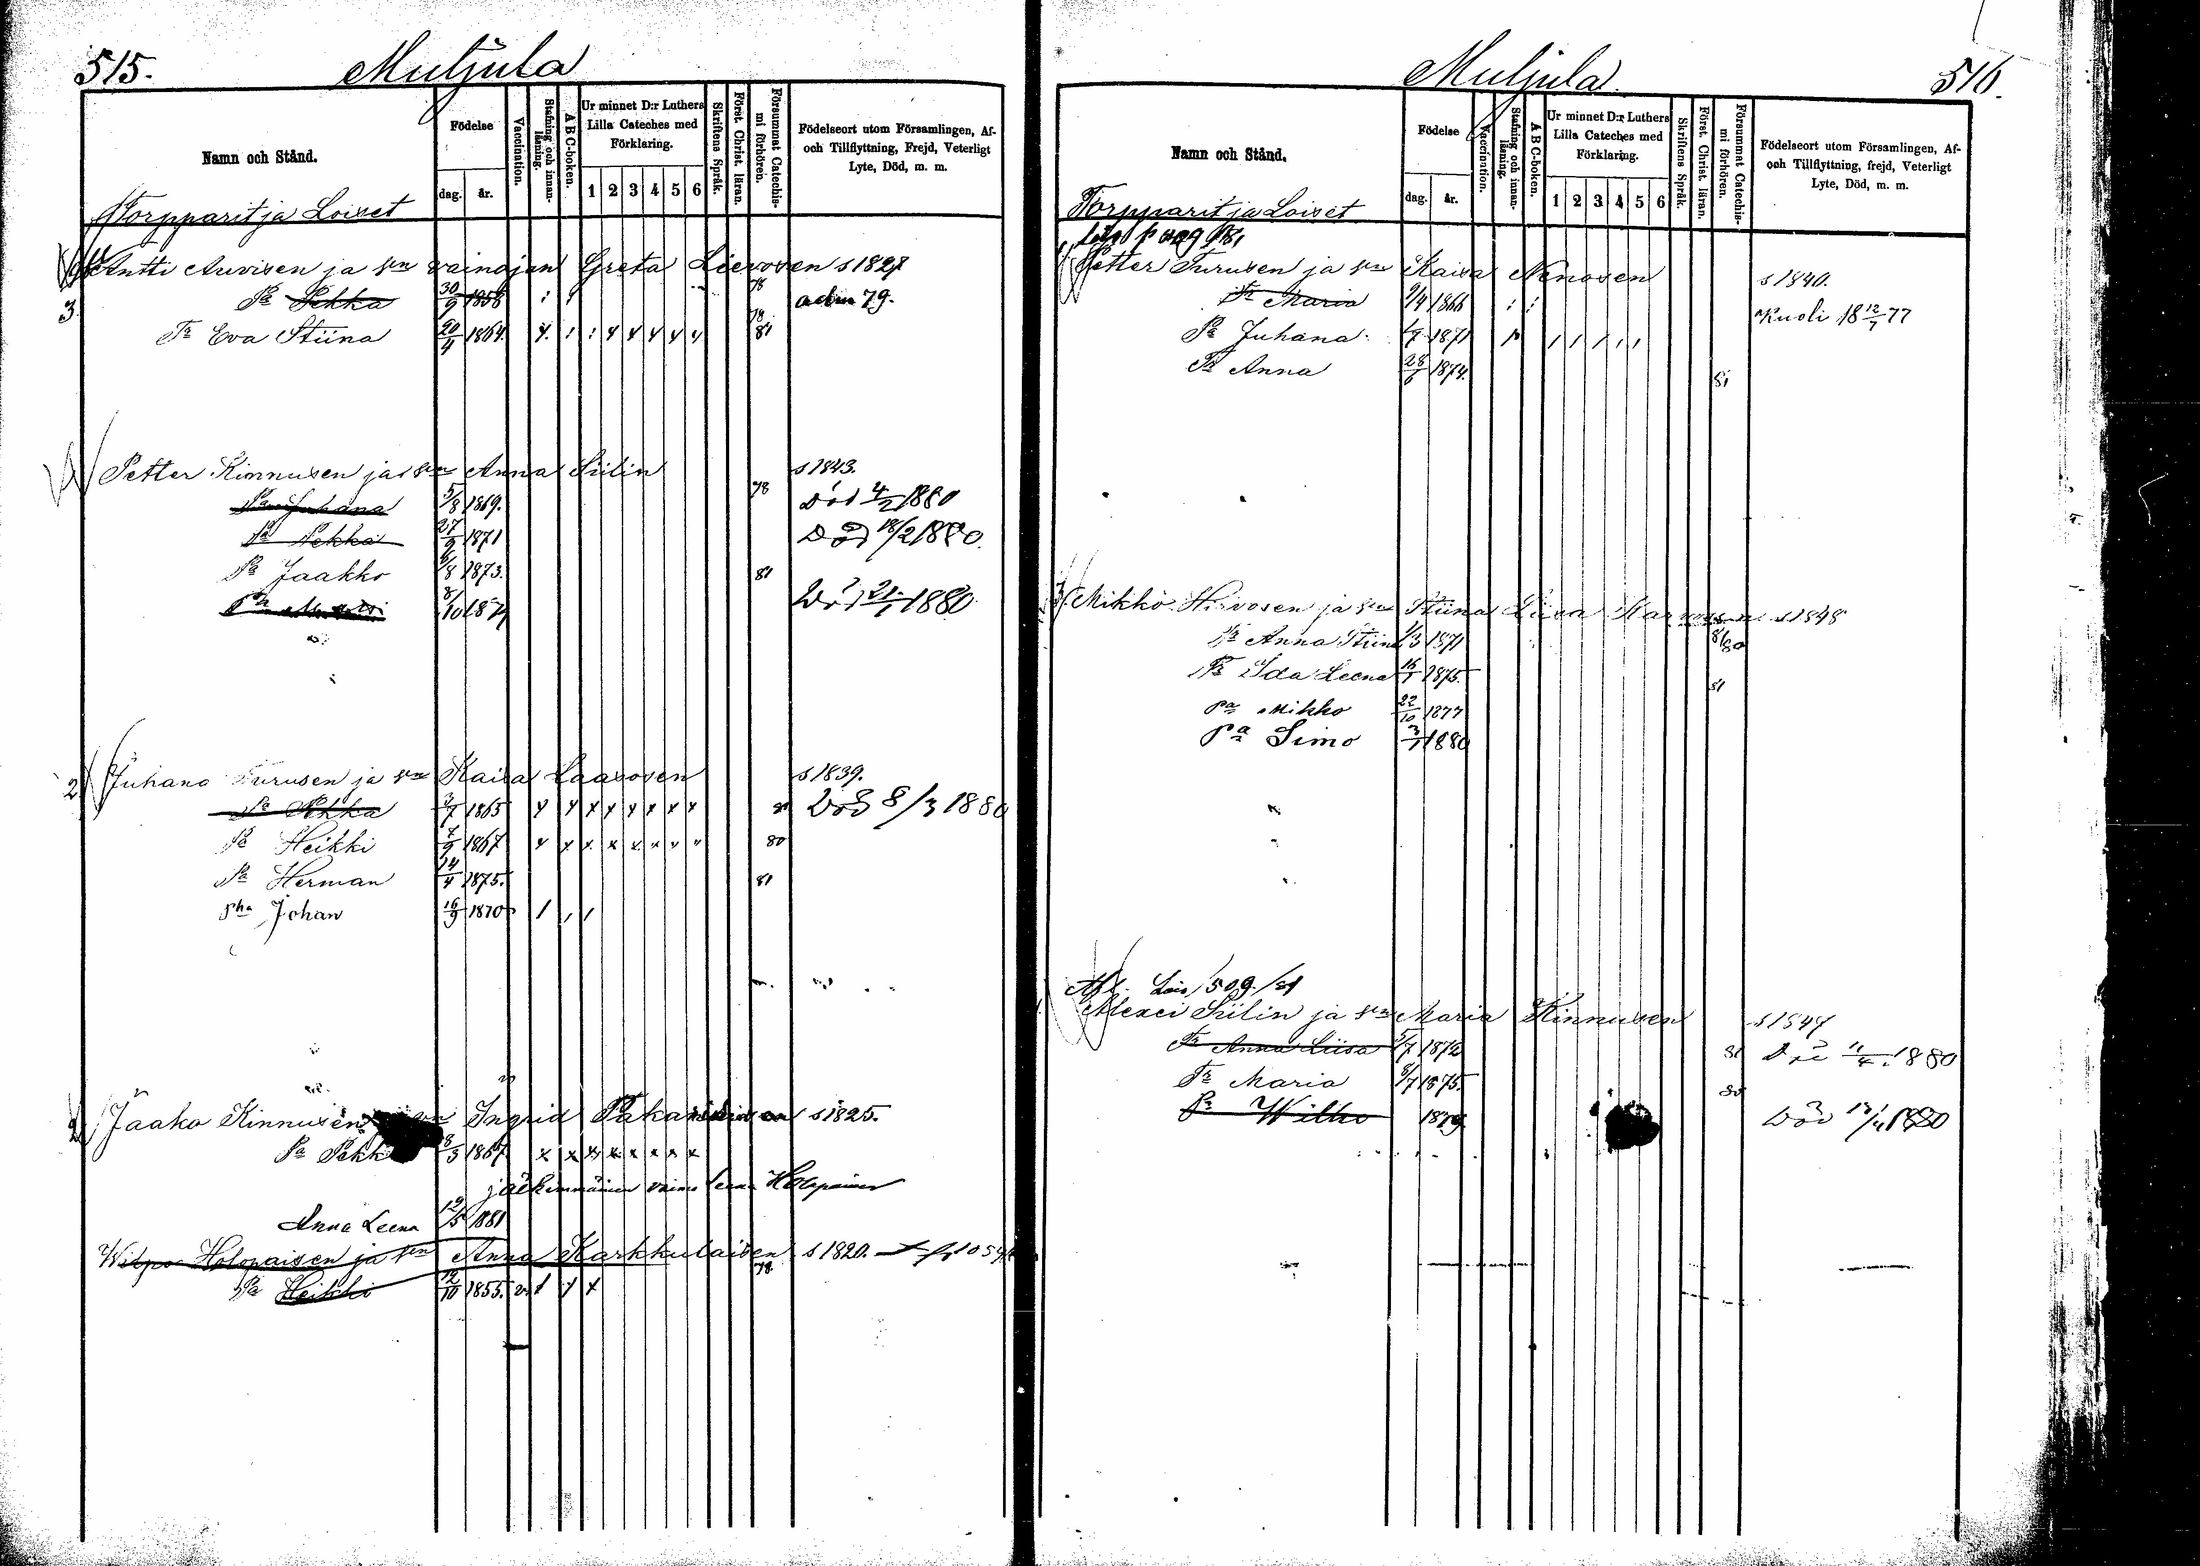 515.
Muljula
Namn och Stånd.
Födelse
dag.
år.
Vaccination.
Stafning och innanläsning.
A B C-boken.
Ur minnet D:r Luthers
Lilla Cateches med
Förklaring.
1 2 3 4 5 6
Skriftens Språk.
Först. Christ. läran.
Försummat Catechismi förhören.
Födelseort utom Församlingen, Af-
och Tillflyttning, Frejd, Veterligt
Lyte, Död, m. m.
Torpparit ja Loiset
Antti Auvisen ja sen vainajan Greta s 1827
Pa Pekka 30/9 1858 78 adm 79.
3.
Tr Eva Stiina 20/4 1864. 78 81
Petter Kinnusen ja sen Anna Siilin s 1843.
Pa Juhana 5/8 1869. 78 Död 4/2 1880
Pa Pekka 27/9 1871 Död 18/2 1880.
Pa Jaakko 6/8 1873. 81
8/10 187 Död 21/1 1880
2 Juhana Turusen ja sen Kaisa Laasosen s 1839.
Pa Pekka 3/7 1865 Död 8/3 1880
Pa Heikki 7/9 1867 80
Pa Herman 14/4 1875. 81
Pha Johan 16/9 1870
Jaako Kinnusen Ingrid s 1825.
Pa Pekk 8/3 1867
jälkimmäinen vaimo Leena Holopainen
Anna Leena 12/5 1881
Holopaisen ja sen Anna Karkkulaisen s 1820.
78
Pa Heikki 12/10 1855.
Muljula.
516.
Namn och Stånd.
Födelse
dag.
år.
Vaccination.
Stafning och innanläsning.
A B C-boken.
Ur minnet D:r Luthers
Lilla Cateches med
Förklaring.
1 2 3 4 5 6
Skriftens Språk.
Först. Christ. läran.
Försummat Catechismi förhören.
Födelseort utom Församlingen, Af-
och Tillflyttning, frejd, Veterligt
Lyte, Död, m. m.
Torpparit ja Loiset
Petter Turusen ja sen Kaisa Nenosen s 1840.
Tr Maria 9/4 1866 Kuoli 18 12/7 77
Pa Juhana 1871
Tr Anna 28/6 1874. 81
Mikko Hirvosen ja sen Stiina Liisa s 1848
Tr Anna Stiina 1/3 1871 81/80
Tr Ida Leena 16/1 1875. 81
Pa Mikko 22/10 1877
Pa Simo 3/1 1880
Lois 509./81
Alexei Siilin ja sen Maria Kinnusen s 1847
Tr Anna Liisa 5/7 1872 81 Död 11/4 1880
Tr Maria 8/7 1875. 80
Pa Wilho 1879 Död 1880